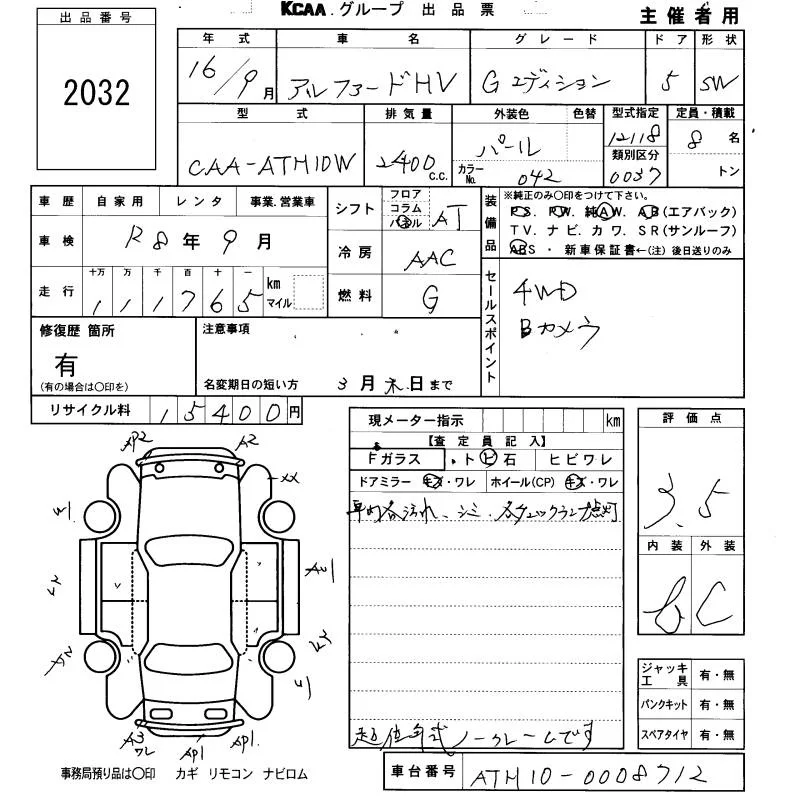 KCAA.グループ 出品票
主催者用
出品番号
2032
年式 車名 グレード ドア 形状
16/9月 アルファードHV Gエディション 5 SW
型式 排気量 外装色 色替 型式指定 定員・積載
CAA-ATH10W 2400c.c. パール カラーNo. 042 12118 8名
類別区分 0037 トン
車歴 自家用 レンタ 事業.営業車
車検 R8年9月
走行 十万 万 千 百 十 一 km マイル
111765
シフト フロア コラム パネル AT
冷房 AAC
燃料 G
装備品 ※純正のみ〇印をつけて下さい。
PS. PW. 純AW. AB(エアバック)
TV. ナビ. カワ. SR(サンルーフ)
ABS ・ 新車保証書←(注)後日送りのみ
セールスポイント
4WD
Bカメラ
修復歴 箇所
有
(有の場合は〇印を)
注意事項
名変期日の短い方 3月末日まで
リサイクル料 15400円
現メーター指示 km
【査定員記入】
Fガラス ・トビ石 ヒビワレ
ドアミラー キズ・ワレ ホイール(CP) キズ・ワレ
車内各汚れ、シミ、各チェックランプ点灯
超低年式ノークレームです
評価点
3.5
内装 外装
C
ジャッキ 工具 有・無
パンクキット 有・無
スペアタイヤ 有・無
AP2 A2
XX
A3 ワレ AP1 AP1
事務局預り品は〇印 カギ リモコン ナビロム
車台番号 ATH10-0008712